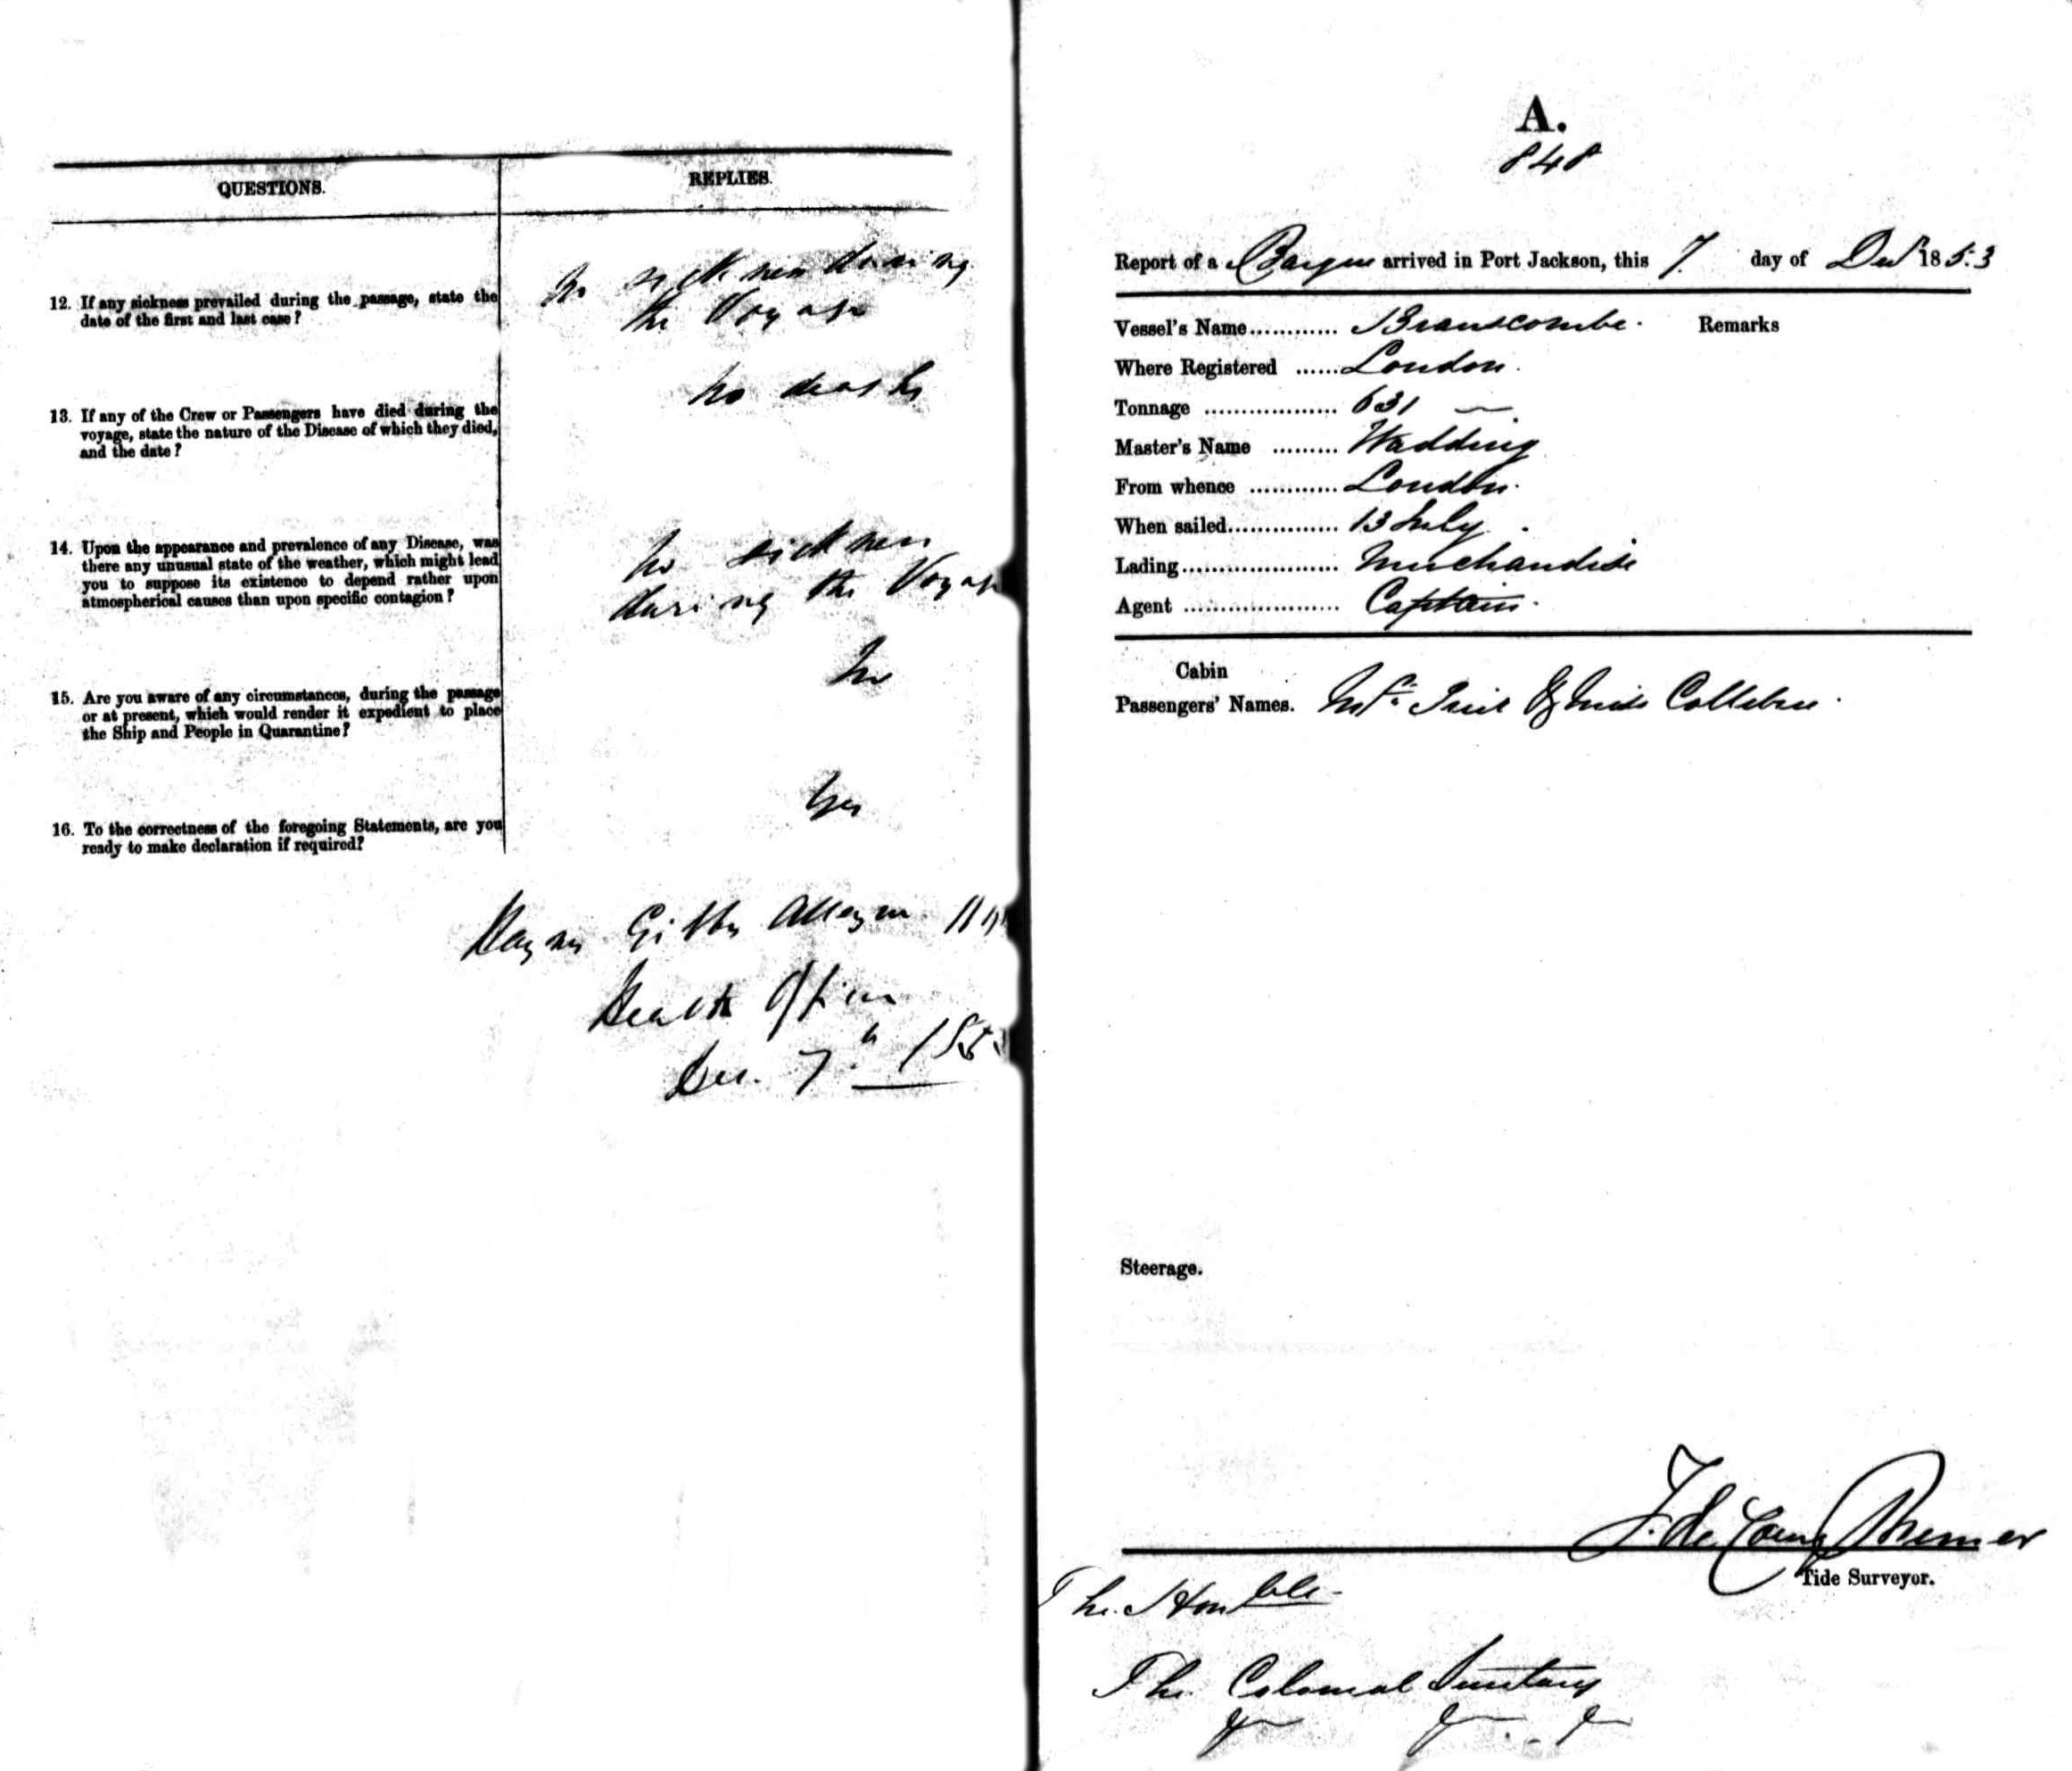 QUESTIONS.
REPLIES.
12. If any sickness prevailed during the passage, state the
date of the first and last case?
No sickness during
the Voyage
13. If any of the Crew or Passengers have died during the
voyage, state the nature of the Disease of which they died,
and the date?
No deaths
14. Upon the appearance and prevalence of any Disease, was
there any unusual state of the weather, which might lead
you to suppose its existence to depend rather upon
atmospherical causes than upon specific contagion?
No sickness
during the Voyage
15. Are you aware of any circumstances, during the passage
or at present, which would render it expedient to place
the Ship and People in Quarantine?
No
16. To the correctness of the foregoing Statements, are you
ready to make declaration if required?
Yes
Haynes Gibbes Alleyne
Health Officer
Dec. 7th 185
A.
848
Report of a Barque arrived in Port Jackson, this 7. day of Decr 1853
Vessel's Name............ Branscombe. Remarks
Where Registered ......London.
Tonnage .................. 631
Master's Name ......... Wadding
From whence ............London.
When sailed............... 13 July.
Lading..................... Merchandise
Agent ...................... Captain.
Cabin
Passengers' Names. Mrs & Miss
Steerage.
Tide Surveyor.
The Honble
The Colonial Secretary